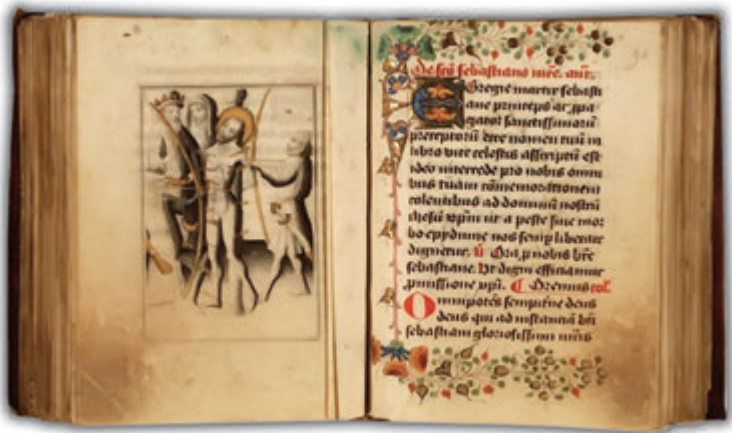 De sco sebastiano mre. anr.
Egregie martir sebasti
ane princeps et ppa
gator sanctissimorū
preceptorū ecce nomen tuū in
libro vite celestis asscriptū est
ideo intercede pro nobis omni
bus tuam cōmemorationem
colentibus ad dominū nostrū
ihesū xpm ut a peste siue mor
bo epydimie nos semp liberare
dignetur. v̄ Ora p nobis bte
sebastiane. Vt digni efficiamur
pmissione xpi. Oremus col.
Omnipotēs sempitne deus
deus qui ad instanciā bti
sebastiani gloriosissimi mris